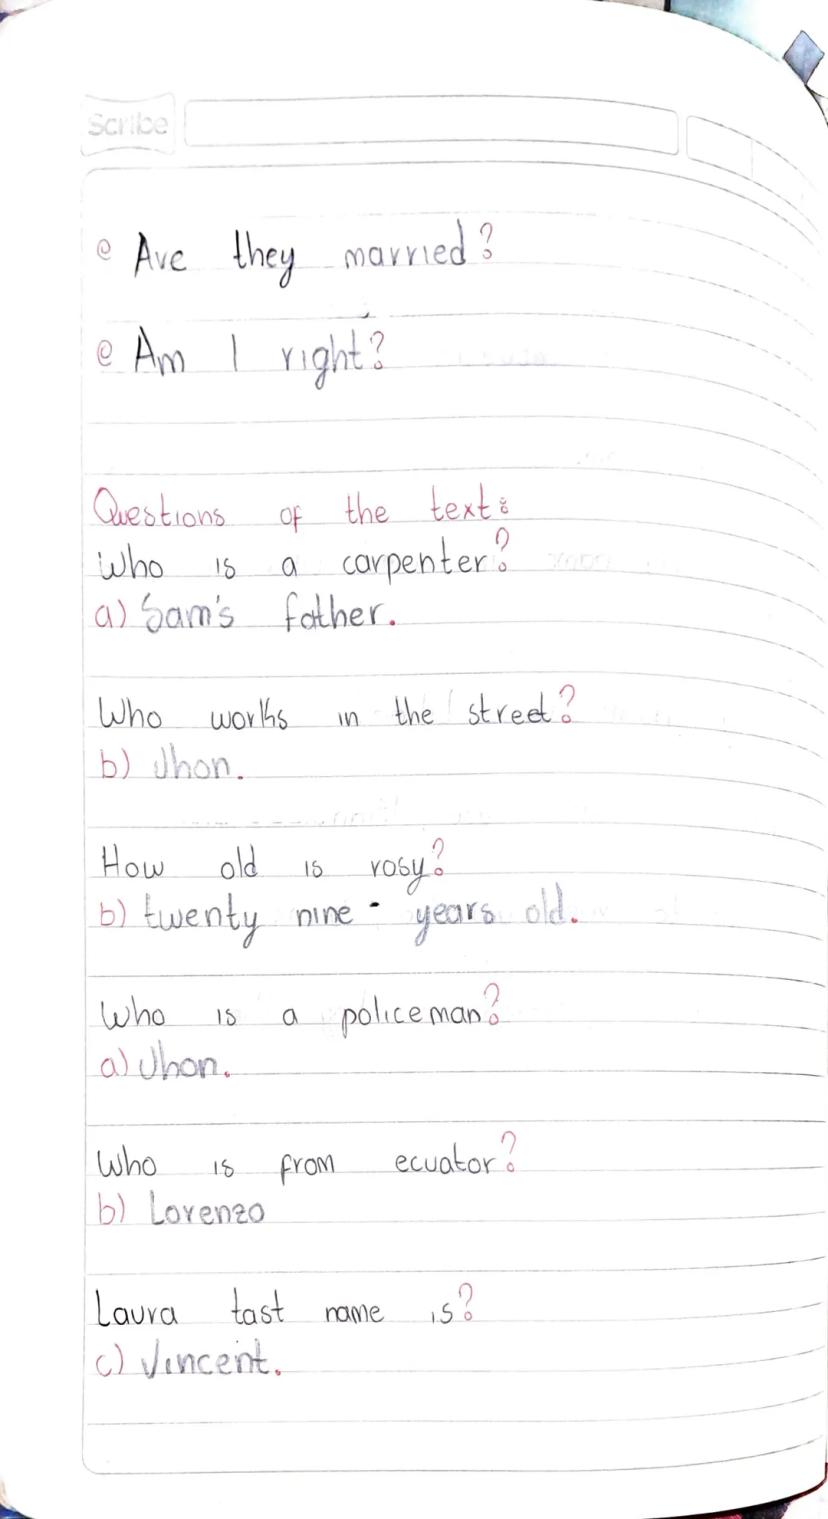 Scribe
@ Are they married?
@ Am I right?
Questions of the text:
Who is a carpenter?
a) Sam's father.
Who works in the street?
b) Jhon.
How old is rosy?
b) twenty nine - years old.
Who is a policeman?
a) Jhon.
Who is from ecuator?
b) Lorenzo
Laura tast name is?
c) Vincent.